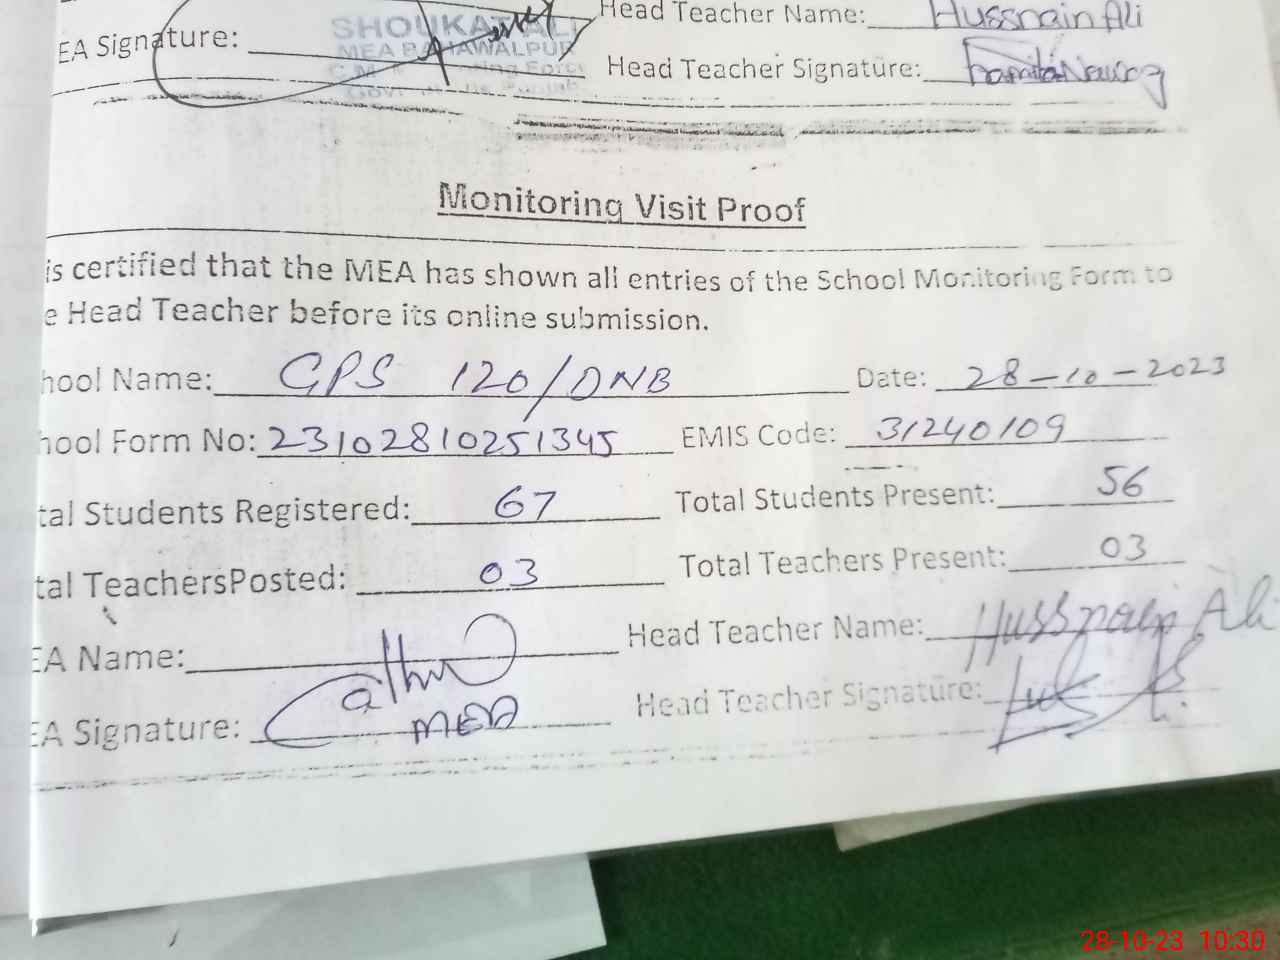 EA Signature:
SHOUKAT ALI
MEA BAHAWALPUR
Head Teacher Name: Hussnain Ali
Head Teacher Signature:
Monitoring Visit Proof
is certified that the MEA has shown all entries of the School Monitoring Form to
e Head Teacher before its online submission.
hool Name: GPS 120/DNB Date: 28-10-2023
hool Form No: 23102810251345 EMIS Code: 31240109
tal Students Registered: 67 Total Students Present: 56
tal TeachersPosted: 03 Total Teachers Present: 03
EA Name: Head Teacher Name: Hussnain Ali
EA Signature: MEA Head Teacher Signature:
28-10-23 10:30